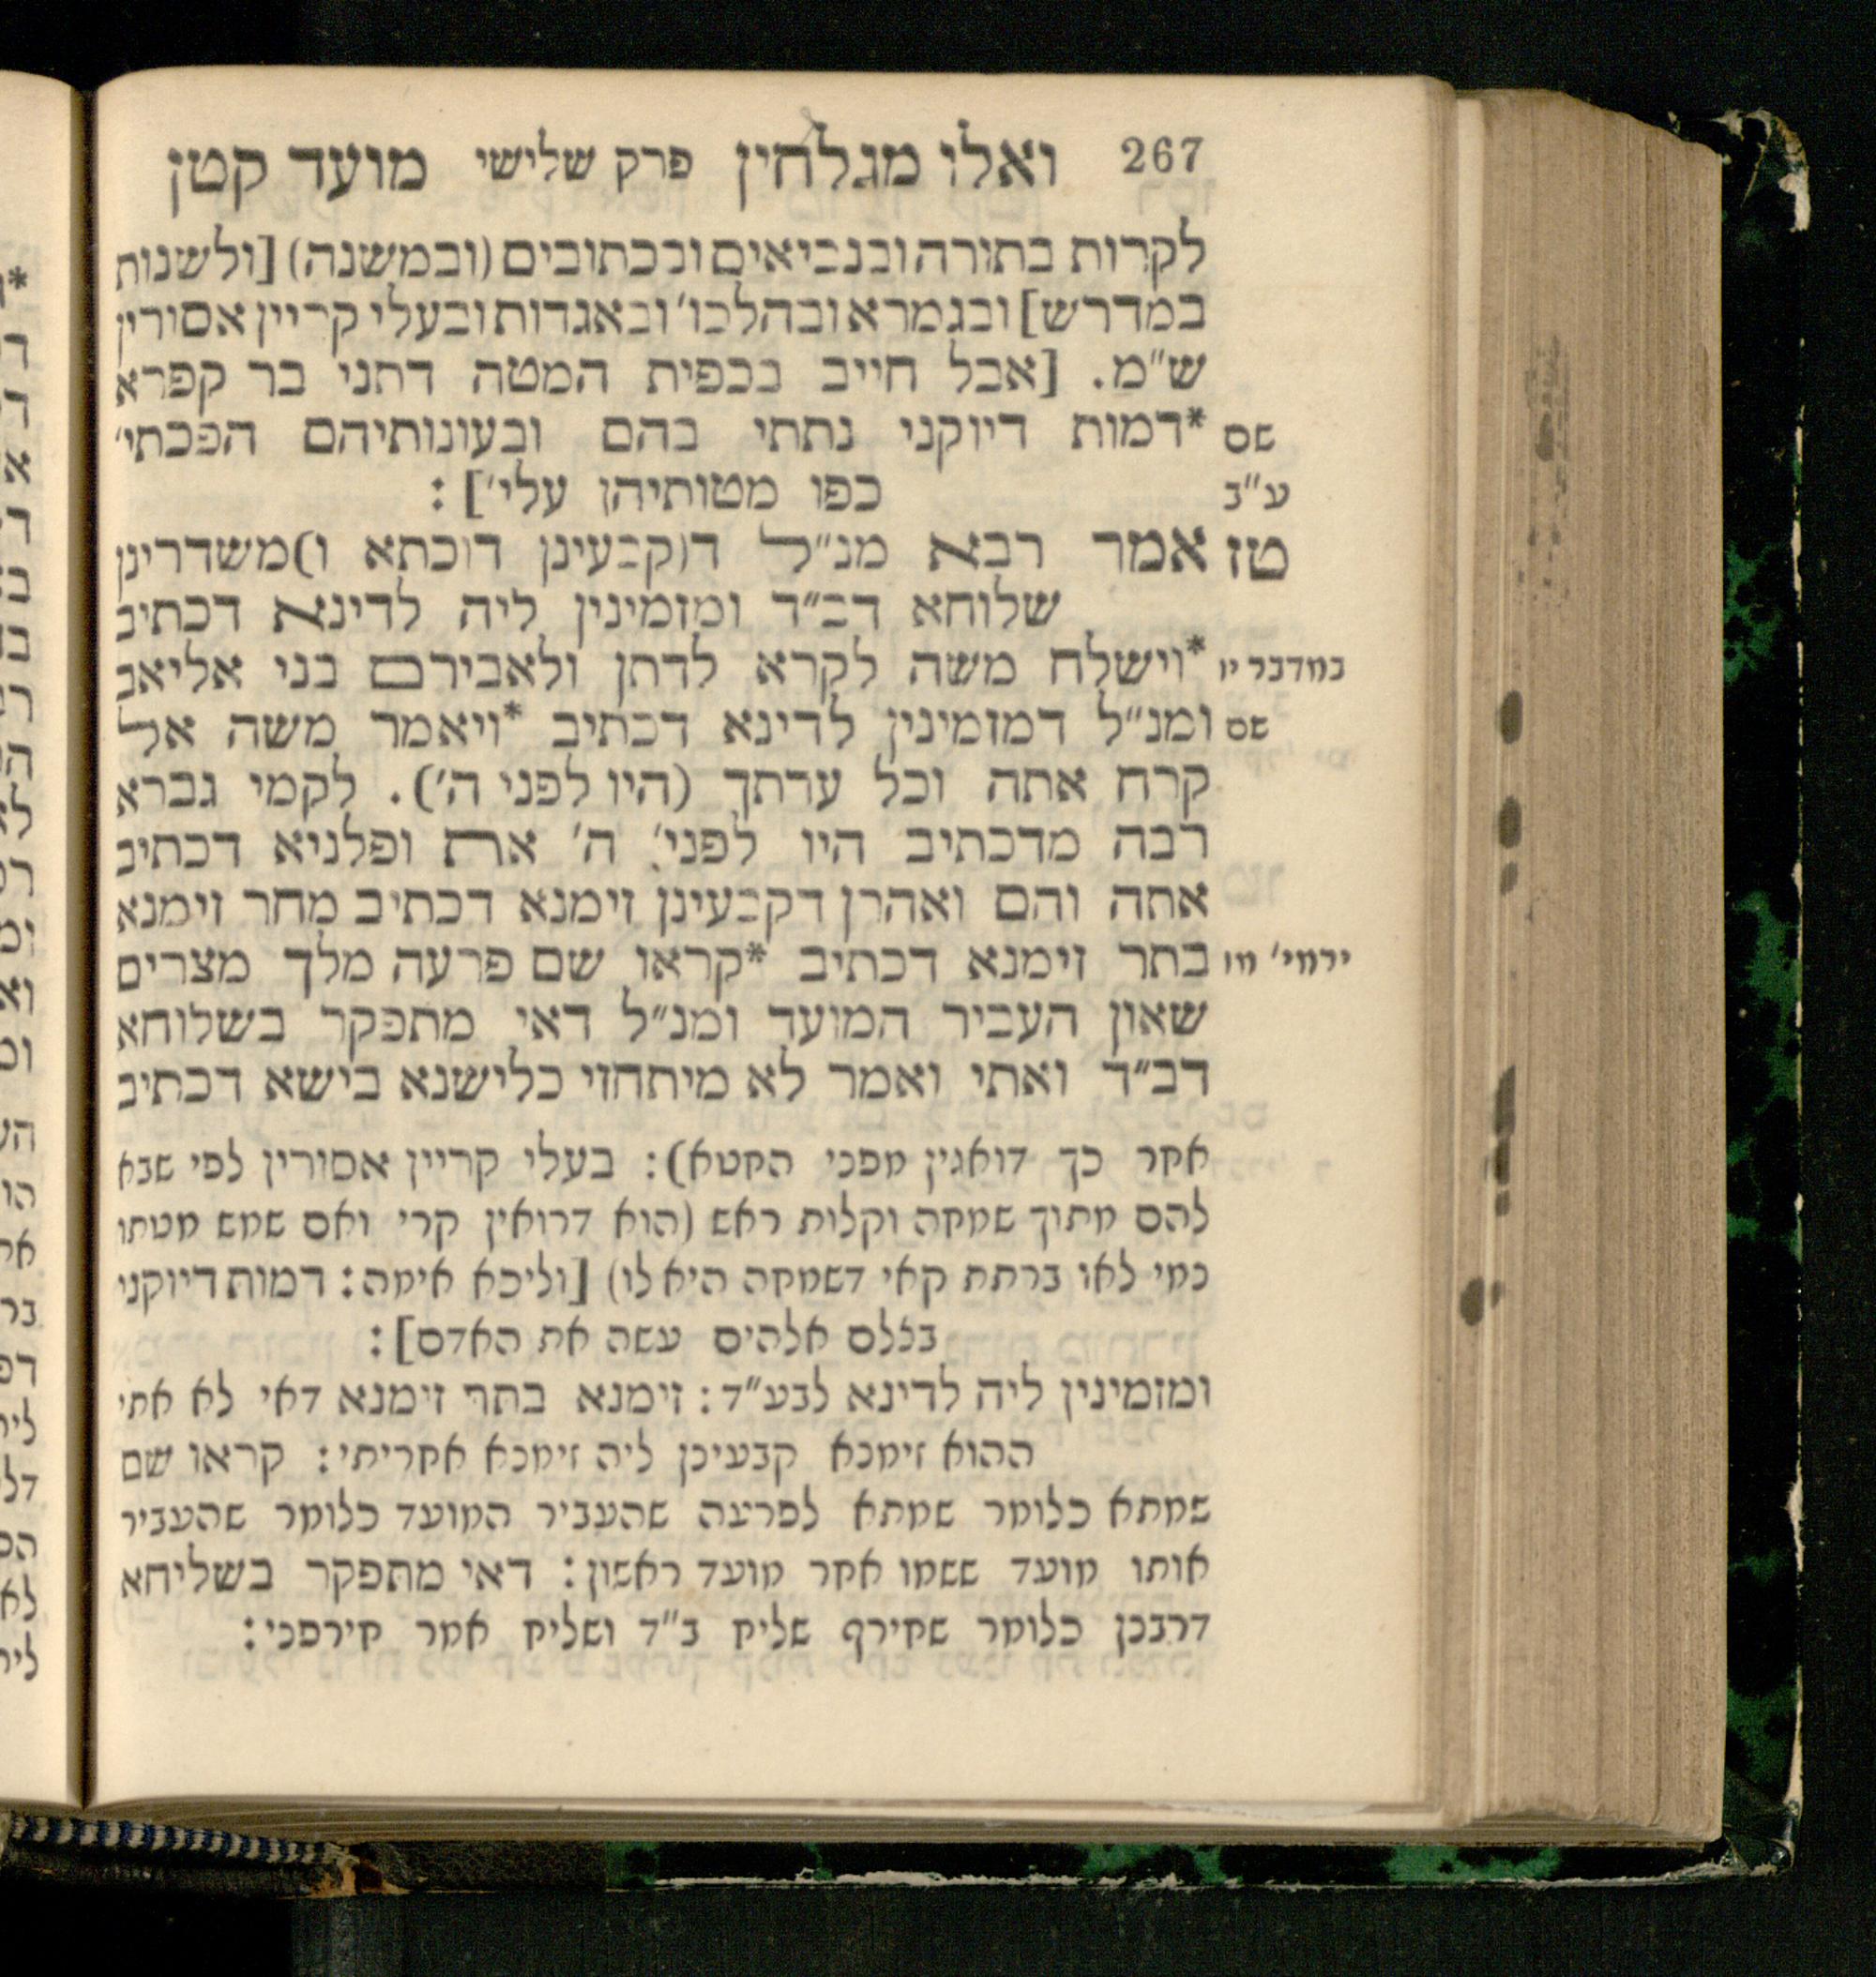 267 ואלו מגלחין פרק שלישי מועד קטן
לקרות בתורה ובנביאים ובכתובים (ובמשנה) [ולשנות
במדרש] ובגמרא ובהלכו׳ ובאגדות ובעלי קריין אסורין
ש״מ. [אבל חייב בכפית המטה דתני בר קפרא
שם *דמות דיוקני נתתי בהם ובעונותיהם הפכתי׳
ע״ב כפו מטותיהן עלי׳]:
טז אמר רבא מנ״ל ד(קבעינן דוכתא ו)משדרינן
שלוחא דב״ד ומזמינין ליה לדינא דכתיב
במדבר יו *וישלח משה לקרא לדתן ולאבירם בני אליאב
שם ומנ״ל דמזמינין לדינא דכתיב *ויאמר משה אל
קרח אתה וכל עדתך (היו לפני ה׳). לקמי גברא
רבה מדכתיב היו לפני׳ ה׳ את ופלניא דכתיב
אתה והם ואהרן דקבעינן זימנא דכתיב מחר זימנא
ירמי׳ מו בתר זימנא דכתיב *קראו שם פרעה מלך מצרים
שאון העביר המועד ומנ״ל דאי מתפקר בשלוחא
דב״ד ואתי ואמר לא מיתחזי כלישנא בישא דכתיב
אחר כך דואגין מפני החטא): בעלי קריין אסורין לפי שבא
להם מתוך שמחה וקלות ראש (הוא דרואין קרי ואם שמש מטתו
נמי לאו ברתת קאי דשמחה היא לו) [וליכא אימה: דמות דיוקני
בצלם אלהים עשה את האדם]:
ומזמינין ליה לדינא לבע״ד: זימנא בתר זימנא דאי לא אתי
ההוא זימנא קבעינן ליה זימנא אחריתי: קראו שם
שמתא כלומר שמתא לפרעה שהעביר המועד כלומר שהעביר
אותו מועד ששמו אחר מועד ראשון: דאי מתפקר בשליחא
דרבנן כלומר שחירף שליח ב״ד ושליח אמר חירפני: